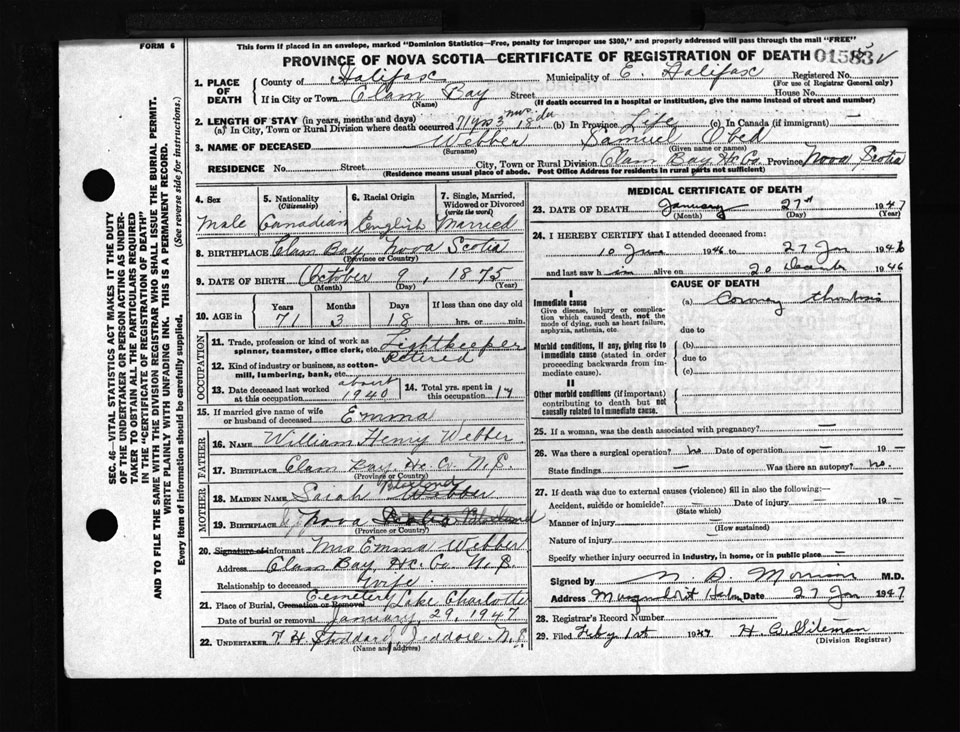 FORM 6
This form if placed in an envelope, marked "Dominion Statistics—Free, penalty for improper use $300," and properly addressed will pass through the mail "FREE"
PROVINCE OF NOVA SCOTIA—CERTIFICATE OF REGISTRATION OF DEATH
1. PLACE OF DEATH County of Halifax Municipality of E. Halifax Registered No.
(For use of Registrar General only)
If in City or Town Clam Bay Street House No.
(Name) (If death occurred in a hospital or institution, give the name instead of street and number)
2. LENGTH OF STAY (in years, months and days)
(a) In City, Town or Rural Division where death occurred 71 yrs 3 mos 18 da (b) In Province Life (c) In Canada (if immigrant) —
3. NAME OF DECEASED Webber Samuel Obed
(Surname) (Given name or names)
RESIDENCE No. Street City, Town or Rural Division Clam Bay Hx Co. Province Nova Scotia
(Residence means usual place of abode. Post Office Address for residents in rural parts not sufficient)
4. Sex
Male
5. Nationality
(Citizenship)
Canadian
6. Racial Origin
English
7. Single, Married, Widowed or Divorced
(write the word)
Married
8. BIRTHPLACE Clam Bay, Nova Scotia
(Province or Country)
9. DATE OF BIRTH October 9, 1875
(Month) (Day) (Year)
10. AGE in Years Months Days If less than one day old
71 3 18 hrs. or min.
OCCUPATION
11. Trade, profession or kind of work as spinner, teamster, office clerk, etc. Lightkeeper
Retired
12. Kind of industry or business, as cotton-mill, lumbering, bank, etc.
13. Date deceased last worked at this occupation about 1940
14. Total yrs. spent in this occupation 14
15. If married give name of wife or husband of deceased Emma
FATHER
16. NAME William Henry Webber
17. BIRTHPLACE Clam Bay, Hx. Co. N.S.
(Province or Country)
MOTHER
18. MAIDEN NAME Sarah Webber
19. BIRTHPLACE Nova Scotia
(Province or Country)
20. Signature of informant Mrs Emma Webber
Address Clam Bay, Hx. Co. N.S.
Relationship to deceased Wife
21. Place of Burial, Cremation or Removal Cemetery Lake Charlotte
Date of burial or removal January 29, 1947
22. UNDERTAKER T. H. Stoddard, Jeddore N.S.
(Name and address)
MEDICAL CERTIFICATE OF DEATH
23. DATE OF DEATH January 27th 1947
(Month) (Day) (Year)
24. I HEREBY CERTIFY that I attended deceased from:
10 June 1946 to 27 Jan
and last saw h im alive on 20 1946
CAUSE OF DEATH
I
Immediate cause
Give disease, injury or complication which caused death, not the mode of dying, such as heart failure, asphyxia, asthenia, etc.
(a) Coronary thrombosis
due to
Morbid conditions, if any, giving rise to immediate cause (stated in order proceeding backwards from immediate cause).
(b)
due to
(c)
II
Other morbid conditions (if important) contributing to death but not causally related to immediate cause.
25. If a woman, was the death associated with pregnancy? —
26. Was there a surgical operation? no Date of operation — 19 —
State findings — Was there an autopsy? no.
27. If death was due to external causes (violence) fill in also the following:—
Accident, suicide or homicide? — Date of injury — 19 —
(State which)
Manner of injury —
(How sustained)
Nature of injury —
Specify whether injury occurred in industry, in home, or in public place —
Signed by M.D.
Address Date 27 Jan 1947
28. Registrar's Record Number
29. Filed Feby 1st 1947
(Division Registrar)
SEC. 46—VITAL STATISTICS ACT MAKES IT THE DUTY
OF THE UNDERTAKER OR PERSON ACTING AS UNDER-
TAKER TO OBTAIN ALL THE PARTICULARS REQUIRED
IN THE "CERTIFICATE OF REGISTRATION OF DEATH"
AND TO FILE THE SAME WITH THE DIVISION REGISTRAR WHO SHALL ISSUE THE BURIAL PERMIT.
WRITE PLAINLY WITH UNFADING INK. THIS IS A PERMANENT RECORD.
Every item of information should be carefully supplied. (See reverse side for instructions.)